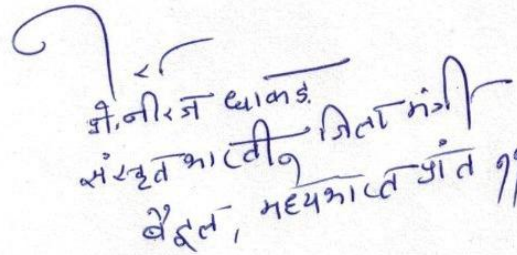 प्रो. नीरज धाकड़
संस्कृत भारती जिला मंत्री
बैतूल, मध्यभारत प्रांत